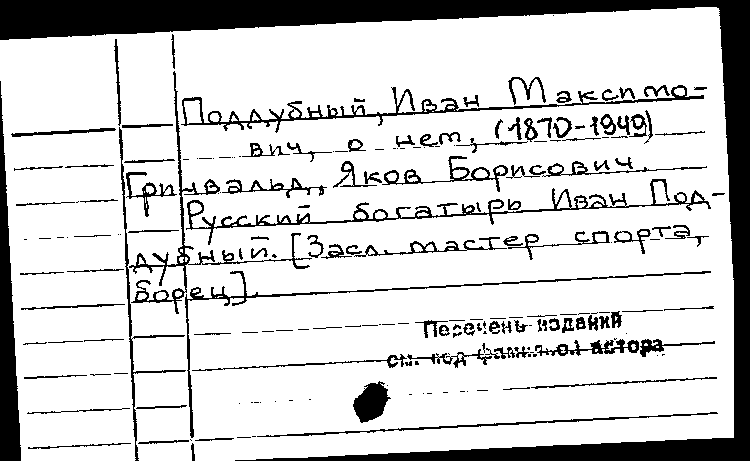 Поддубный, Иван Максимо-
вич, о нем, (1870-1949)
Гринвальд, Яков Борисович.
Русский богатырь Иван Под-
дубный. [Засл. мастер спорта,
борец].
Перечень изданий
см. под фамил. автора